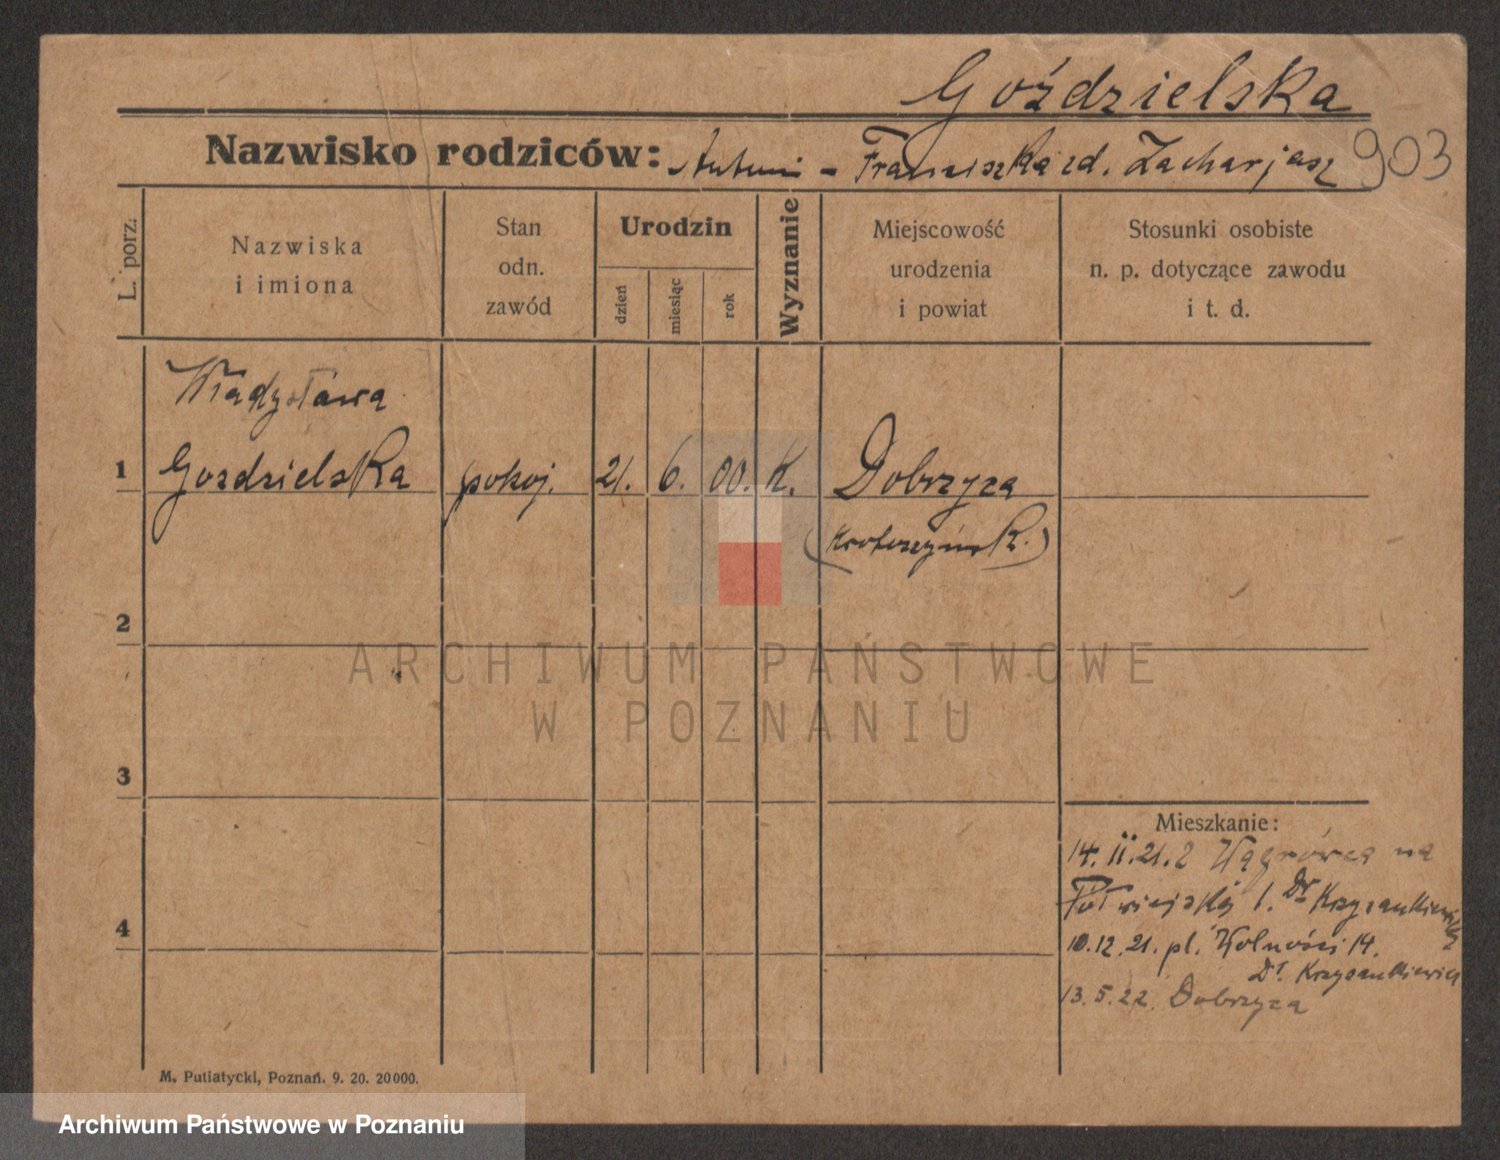 Goździelska
Nazwisko rodziców: Antoni - Franciszka zd. Zacharjasz 903
L. porz.
Nazwiska
i imiona
Stan
odn.
zawód
Urodzin
dzień
miesiąc
rok
Wyznanie
Miejscowość
urodzenia
i powiat
Stosunki osobiste
n. p. dotyczące zawodu
i t. d.
Władysława
1 Gozdzielska pokoj. 21. 6. 00. K. Dobrzyca
(Krotoszyńsk.)
2
3
4
Mieszkanie:
14. II. 21. z Wągrówca na
Półwiejską 1. Dr Krzyżankiewicz
10.12.21. pl. Wolności 14.
Dr. Krzyżankiewicz
13.5.22. Dobrzyca
M. Putiatycki, Poznań. 9. 20. 20000.
ARCHIWUM PAŃSTWOWE
W POZNANIU
Archiwum Państwowe w Poznaniu